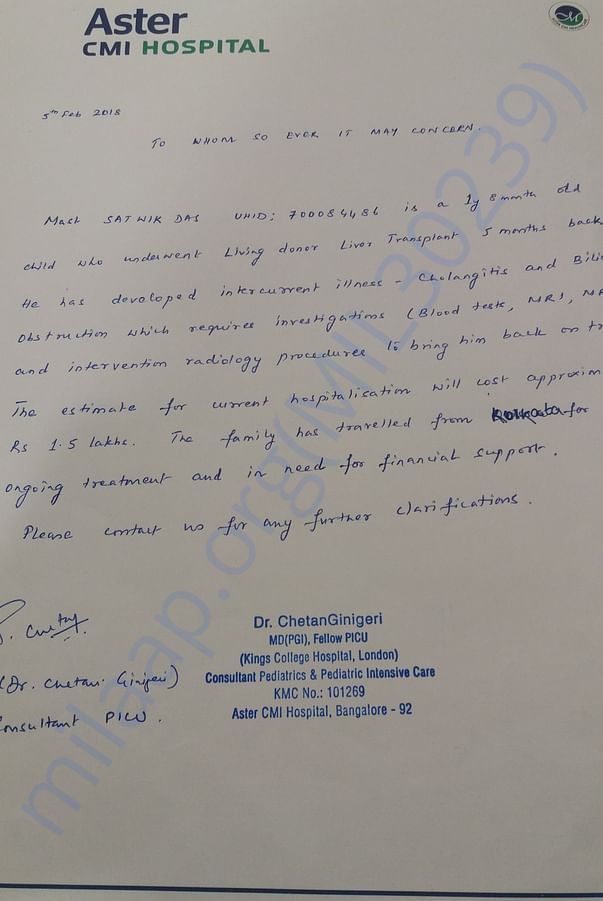 Aster
CMI HOSPITAL
5th Feb 2018
TO WHOM SO EVER IT MAY CONCERN.
Mast SATWIK DAS UHID: 700084486 is a 1y 8 month old
child who underwent Living donor Liver Transplant 5 months back
He has developed intercurrent illness - Cholangitis and Bili
Obstruction which requires investigations (Blood tests, MRI, MR
and intervention radiology procedures to bring him back on tr
The estimate for current hospitalisation will cost approxim
Rs 1.5 lakhs. The family has travelled from Kolkata for
ongoing treatment and in need for financial support.
Please contact us for any further clarifications.
(Dr. Chetan Ginigeri)
Consultant PICU.
Dr. ChetanGinigeri
MD(PGI), Fellow PICU
(Kings College Hospital, London)
Consultant Pediatrics & Pediatric Intensive Care
KMC No.: 101269
Aster CMI Hospital, Bangalore - 92
milaap.org(MIL30239)